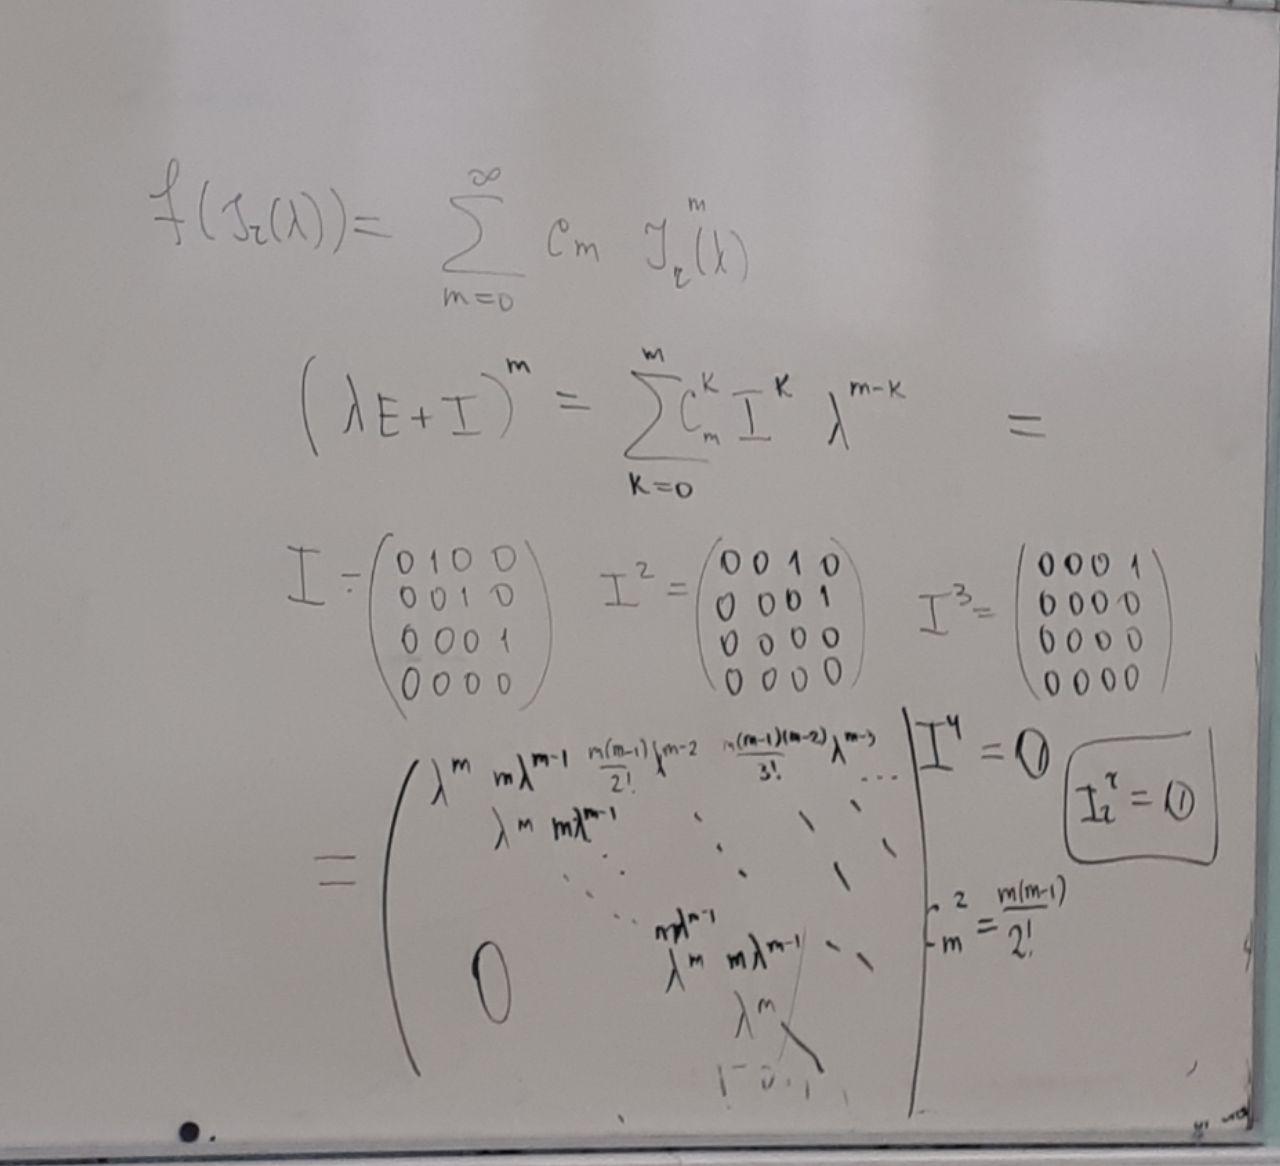 f(J_r(λ)) = ∑_{m=0}^{∞} c_m J_r^m(λ)
(λE + I)^m = ∑_{k=0}^{m} C_m^k I^k λ^{m-k} =
I = (0 1 0 0; 0 0 1 0; 0 0 0 1; 0 0 0 0) I^2 = (0 0 1 0; 0 0 0 1; 0 0 0 0; 0 0 0 0) I^3 = (0 0 0 1; 0 0 0 0; 0 0 0 0; 0 0 0 0)
= ( λ^m mλ^{m-1} m(m-1)/2! λ^{m-2} m(m-1)(m-2)/3! λ^{m-3} ...
λ^m mλ^{m-1}
mλ^{m-1}
0 λ^m mλ^{m-1}
λ^m
I^4 = 0
I_r^r = 0
C_m^2 = m(m-1)/2!